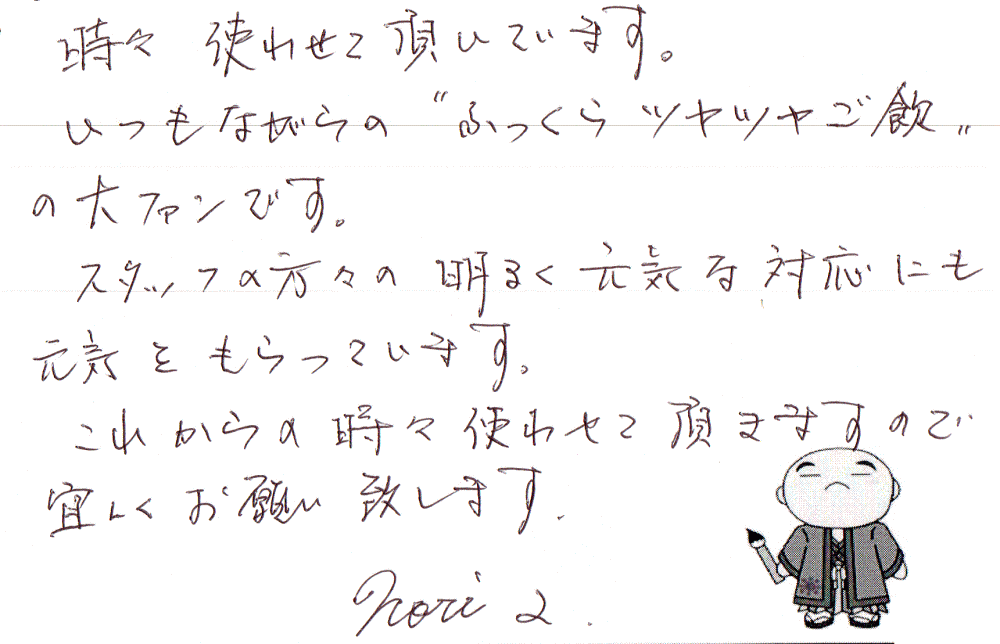 時々 使わせて頂いています。
いつもながらの "ふっくらツヤツヤご飯"
の大ファンです。
スタッフの方々の 明るく元気な対応にも
元気をもらっています。
これからの時々使わせて頂きますので
宜しくお願い致します.
Nori 2.